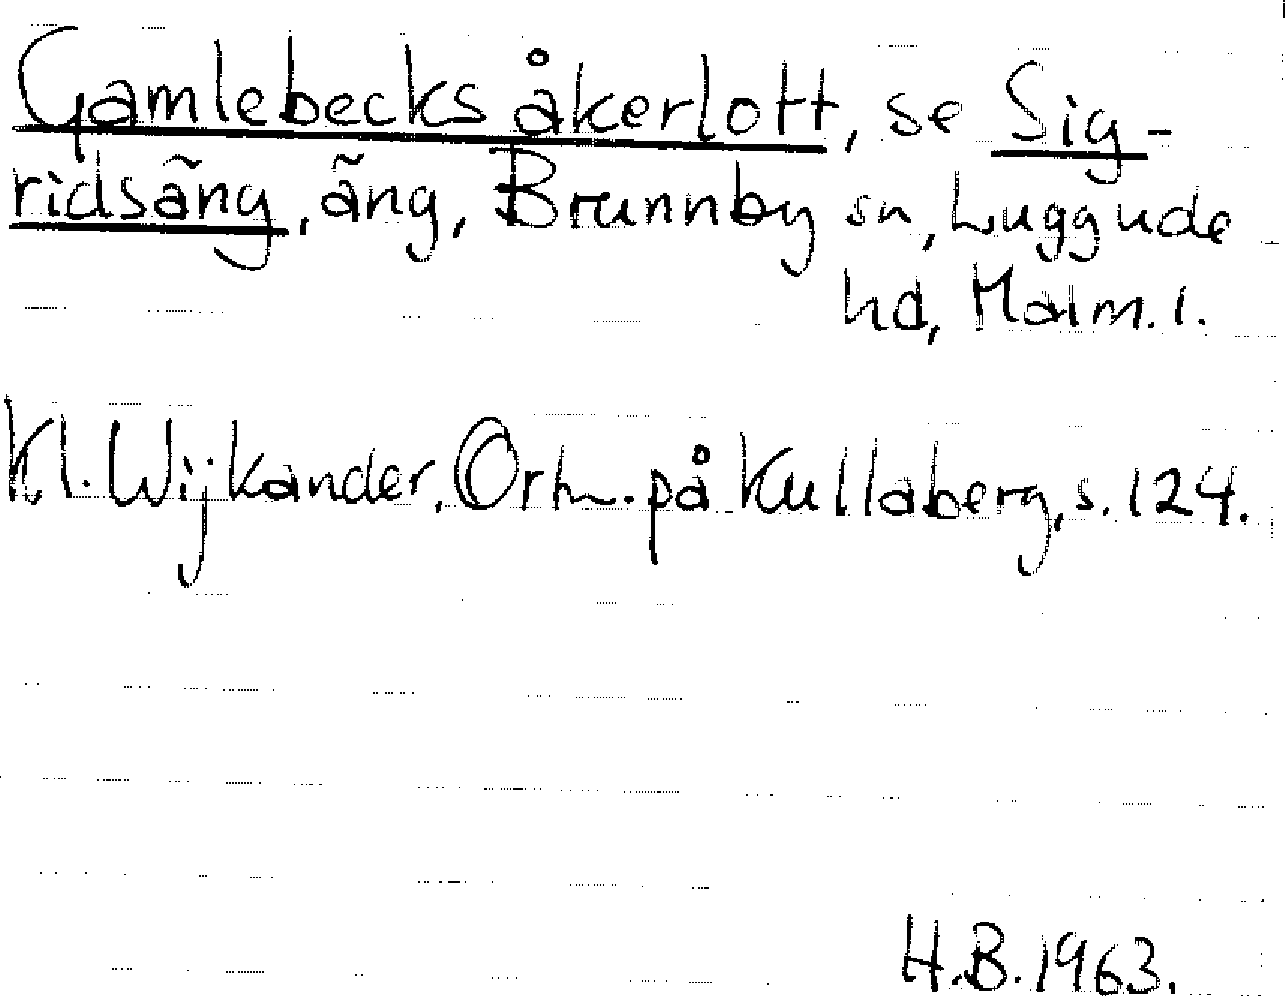 Gamlebecks åkerlott, se Sig-
ridsäng, äng, Brunnby sn, Luggude
hd, Malm. l.
Kl. Wijkander, Ortn. på Kullaberg, s. 124.
H.B. 1963.